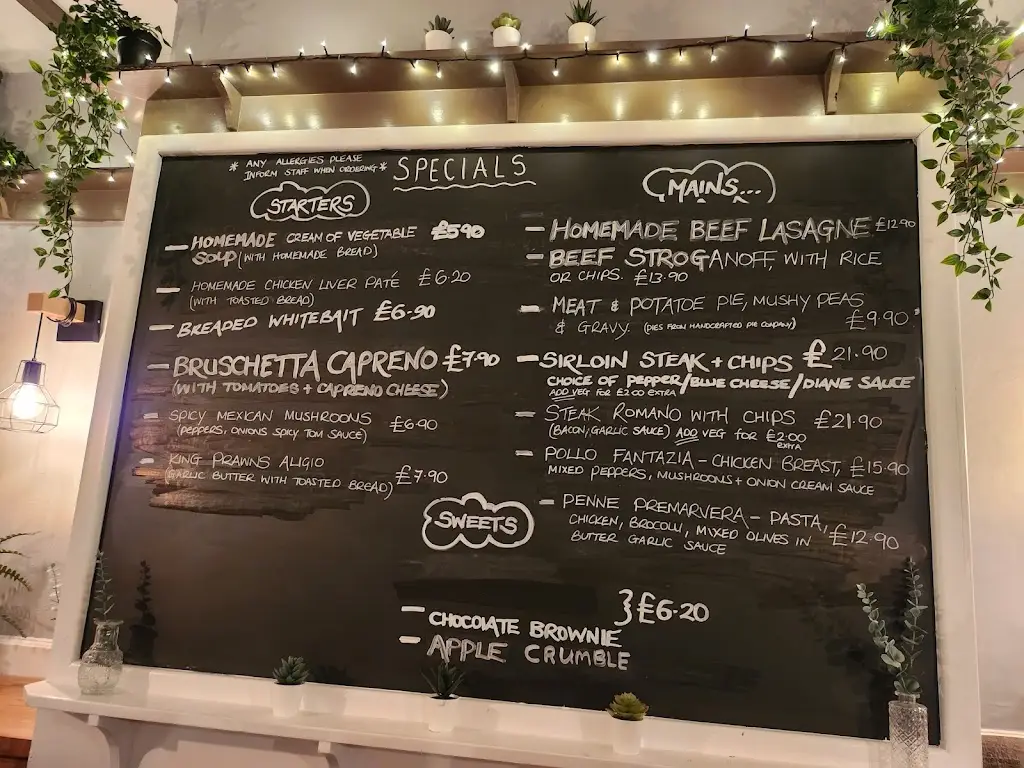 * ANY ALLERGIES PLEASE
INFORM STAFF WHEN ORDERING *
SPECIALS
STARTERS
- HOMEMADE CREAM OF VEGETABLE £5.90
SOUP (WITH HOMEMADE BREAD)
HOMEMADE CHICKEN LIVER PATÉ £6.20
(WITH TOASTED BREAD)
- BREADED WHITEBAIT £6.90
- BRUSCHETTA CAPRENO £7.90
(WITH TOMATOES + CAPRENO CHEESE)
- SPICY MEXICAN MUSHROOMS £6.90
(PEPPERS, ONIONS SPICY TOM SAUCE)
- KING PRAWNS ALIGIO
(GARLIC BUTTER WITH TOASTED BREAD) £7.90
MAINS...
- HOMEMADE BEEF LASAGNE £12.90
- BEEF STROGANOFF, WITH RICE
OR CHIPS. £13.90
- MEAT & POTATOE PIE, MUSHY PEAS
& GRAVY. (PIES FROM HANDCRAFTED PIE COMPANY) £9.90
- SIRLOIN STEAK + CHIPS £21.90
CHOICE OF PEPPER/BLUE CHEESE/DIANE SAUCE
ADD VEG FOR £2.00 EXTRA
- STEAK ROMANO WITH CHIPS £21.90
(BACON, GARLIC SAUCE) ADD VEG FOR £2.00
EXTRA
- POLLO FANTAZIA - CHICKEN BREAST, £15.90
MIXED PEPPERS, MUSHROOMS + ONION CREAM SAUCE
- PENNE PREMARVERA - PASTA,
CHICKEN, BROCOLLI, MIXED OLIVES IN £12.90
BUTTER GARLIC SAUCE
SWEETS
} £6.20
- CHOCOLATE BROWNIE
- APPLE CRUMBLE